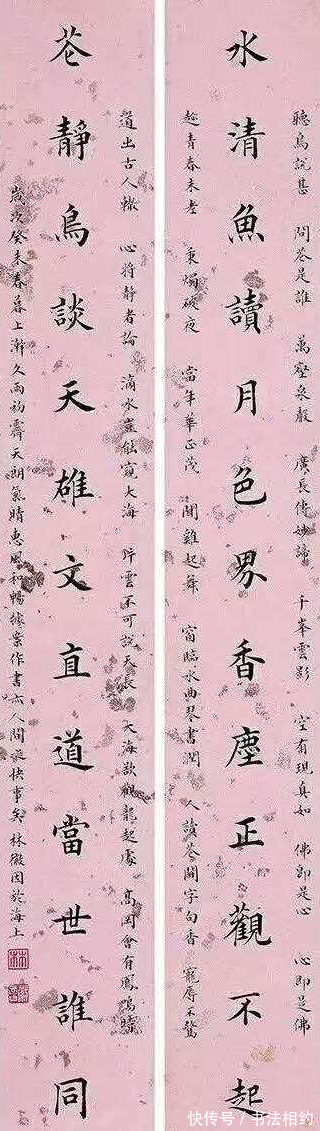 聽鳥說甚 問花是誰 萬壑泉聲 廣長傳妙諦 千峯雲影 空有現真如 佛即是心 心即是佛
水清魚讀月色界香塵正觀不起
趁青春未老 秉燭破夜 當年華正茂 聞雞起舞 窗臨水曲琴書潤 人讀花間字句香 寵辱不驚
道出古人轍 心將靜者論 滴水豈能窺大海 片雲不可說天 大海欲觀龍起處 高岡會有鳳鳴時
花靜鳥談天雄文直道當世誰同
歲次癸未春暮上澣久雨初霽天朗氣晴惠風和暢據案作書亦人間快事矣 林徽因於海上
快传号/书法相约